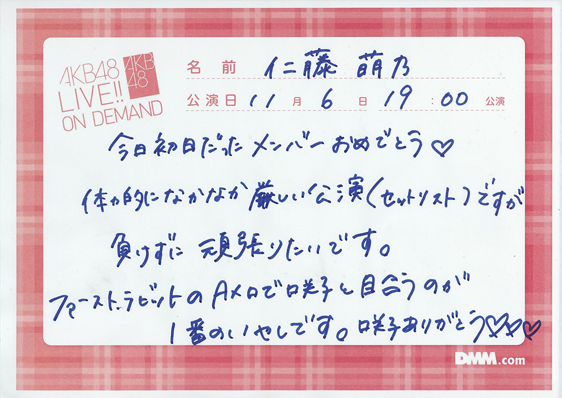 AKB48
LIVE!!
ON DEMAND
AKB
48
名前 仁藤 萌乃
公演日 11月6日 19:00公演
今日初日だったメンバーおめでとう♡
体力的になかなか厳しい公演(セットリスト)ですが
負けずに頑張りたいです。
ファースト・ラビットのAメロで咲子と目合うのが
1番のいやしです。咲子ありがとう♡♡♡
DMM.com